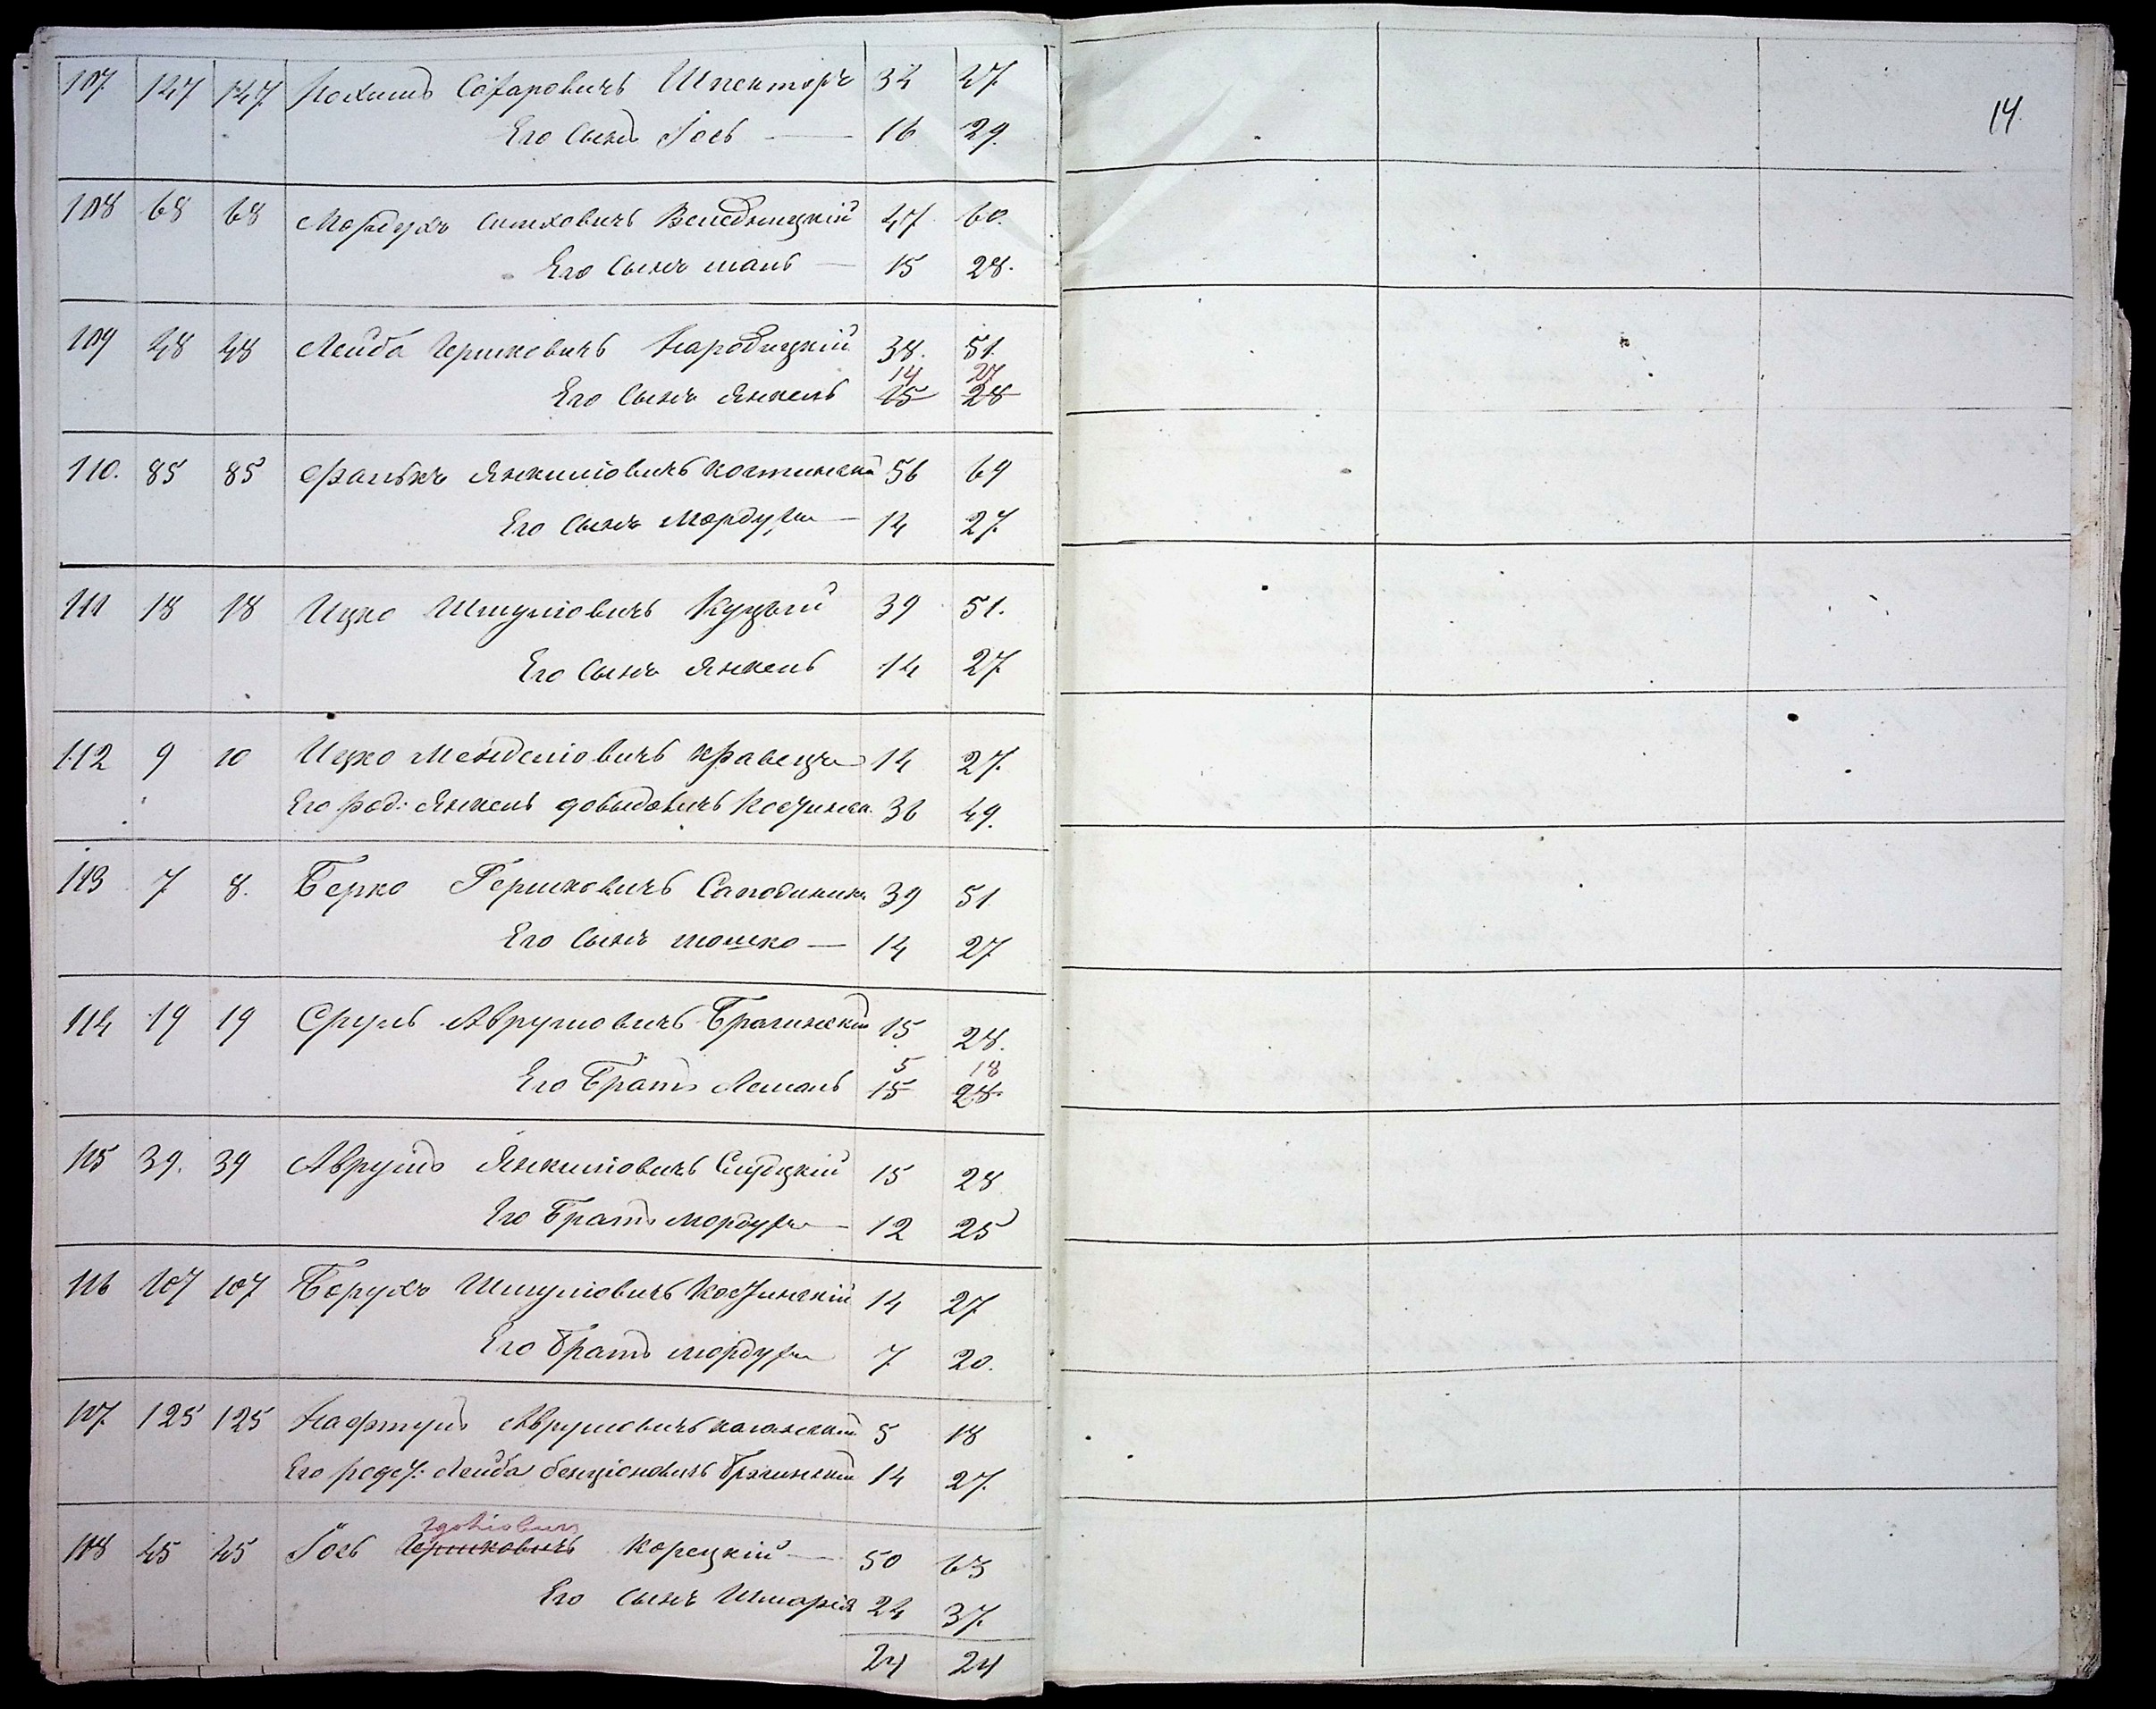 107 147 147 Иохимъ Сахаровичъ Шпекторъ 34 47.
Его Сынъ Іось 16 29.
108 68 68 Мордухъ Симховичъ 47 60.
Его Сынъ 15 28.
109 48 48 Лейба Гершковичъ Народицкій 38. 51.
14 27
Его Сынъ Янкель 15 28
110. 85 85 Фалькъ Янкиліовичъ 56 69
Его Сынъ Мордухъ 14 27.
111 18 18 Ицко Шмуліовичъ Куцый 39 51.
Его Сынъ Янкель 14 27
112 9 10 Ицко Менделіовичъ Кравецъ 14 27.
Его род: Янкель Довидовичъ 36 49.
113 7 8. Берко Гершковичъ 39 51
Его Сынъ мошко 14 27
114 19 19 Сруль Аврумовичъ Брагинскій 15 28.
5 18
Его Братъ 15 28
115 39. 39 Аврумъ Янкиліовичъ Слуцкій 15 28
Его Братъ мордухъ 12 25
116 107 107 Берухъ Шмуліовичъ 14 27
Его Братъ мордухъ 7 20.
117 125 125 Нафтулъ Аврумовичъ 5 18
Его Лейба бенціоновичъ Брагинскій 14 27.
118 45 45 Іось Гершковичъ Корецкій 50 63
Его Сынъ Шмарія 24 37.
24 24
14.